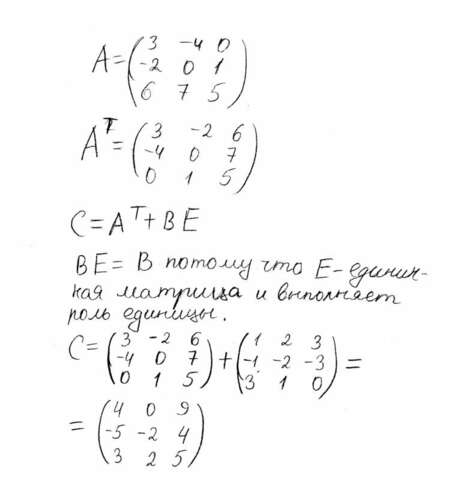 A=(3 -4 0
-2 0 1
6 7 5)
Aᵀ=(3 -2 6
-4 0 7
0 1 5)
C=Aᵀ+BE
BE=B потому что E-единич-
ная матрица и выполняет
роль единицы.
C=(3 -2 6
-4 0 7
0 1 5)+(1 2 3
-1 -2 -3
3 1 0)=
=(4 0 9
-5 -2 4
3 2 5)